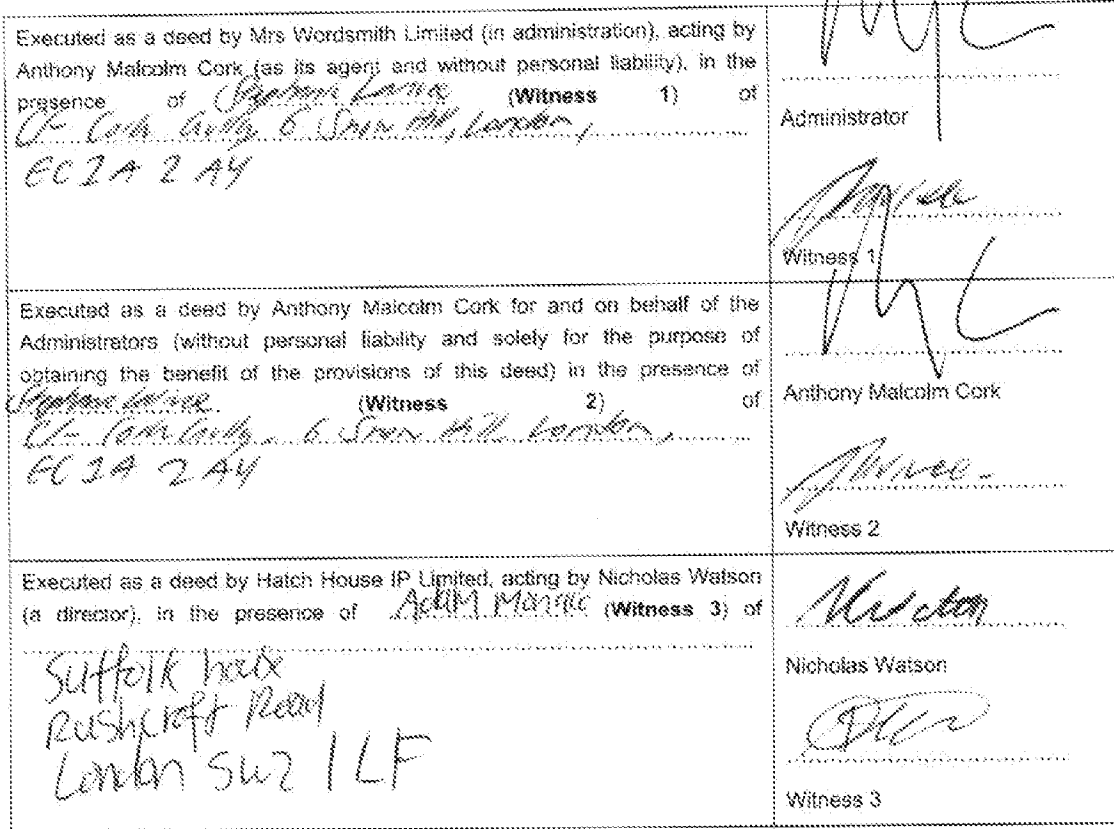 Executed as a deed by Mrs Wordsmith Limited (in administration), acting by
Anthony Malcolm Cork (as its agent and without personal liability), in the
presence of (Witness 1) of
6 Snow Hill, London,
EC1A 2AY
Administrator
Witness 1
Executed as a deed by Anthony Malcolm Cork for and on behalf of the
Administrators (without personal liability and solely for the purpose of
obtaining the benefit of the provisions of this deed) in the presence of
(Witness 2) of
6 Snow Hill, London,
EC1A 2AY
Anthony Malcolm Cork
Witness 2
Executed as a deed by Hatch House IP Limited, acting by Nicholas Watson
(a director), in the presence of Adam (Witness 3) of
Suffolk house
Rushcroft Road
London SW2 1LF
Nicholas Watson
Witness 3